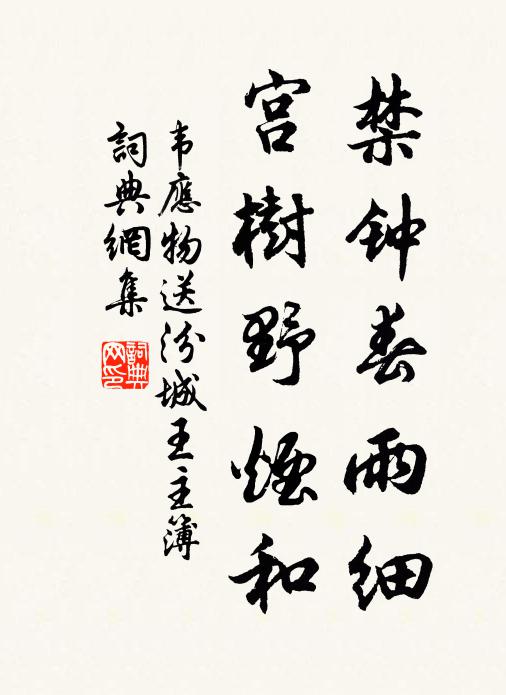 禁钟春雨细
宫樹野煙和
韦應物送汾城王主簿
詞典網集
詞典網印